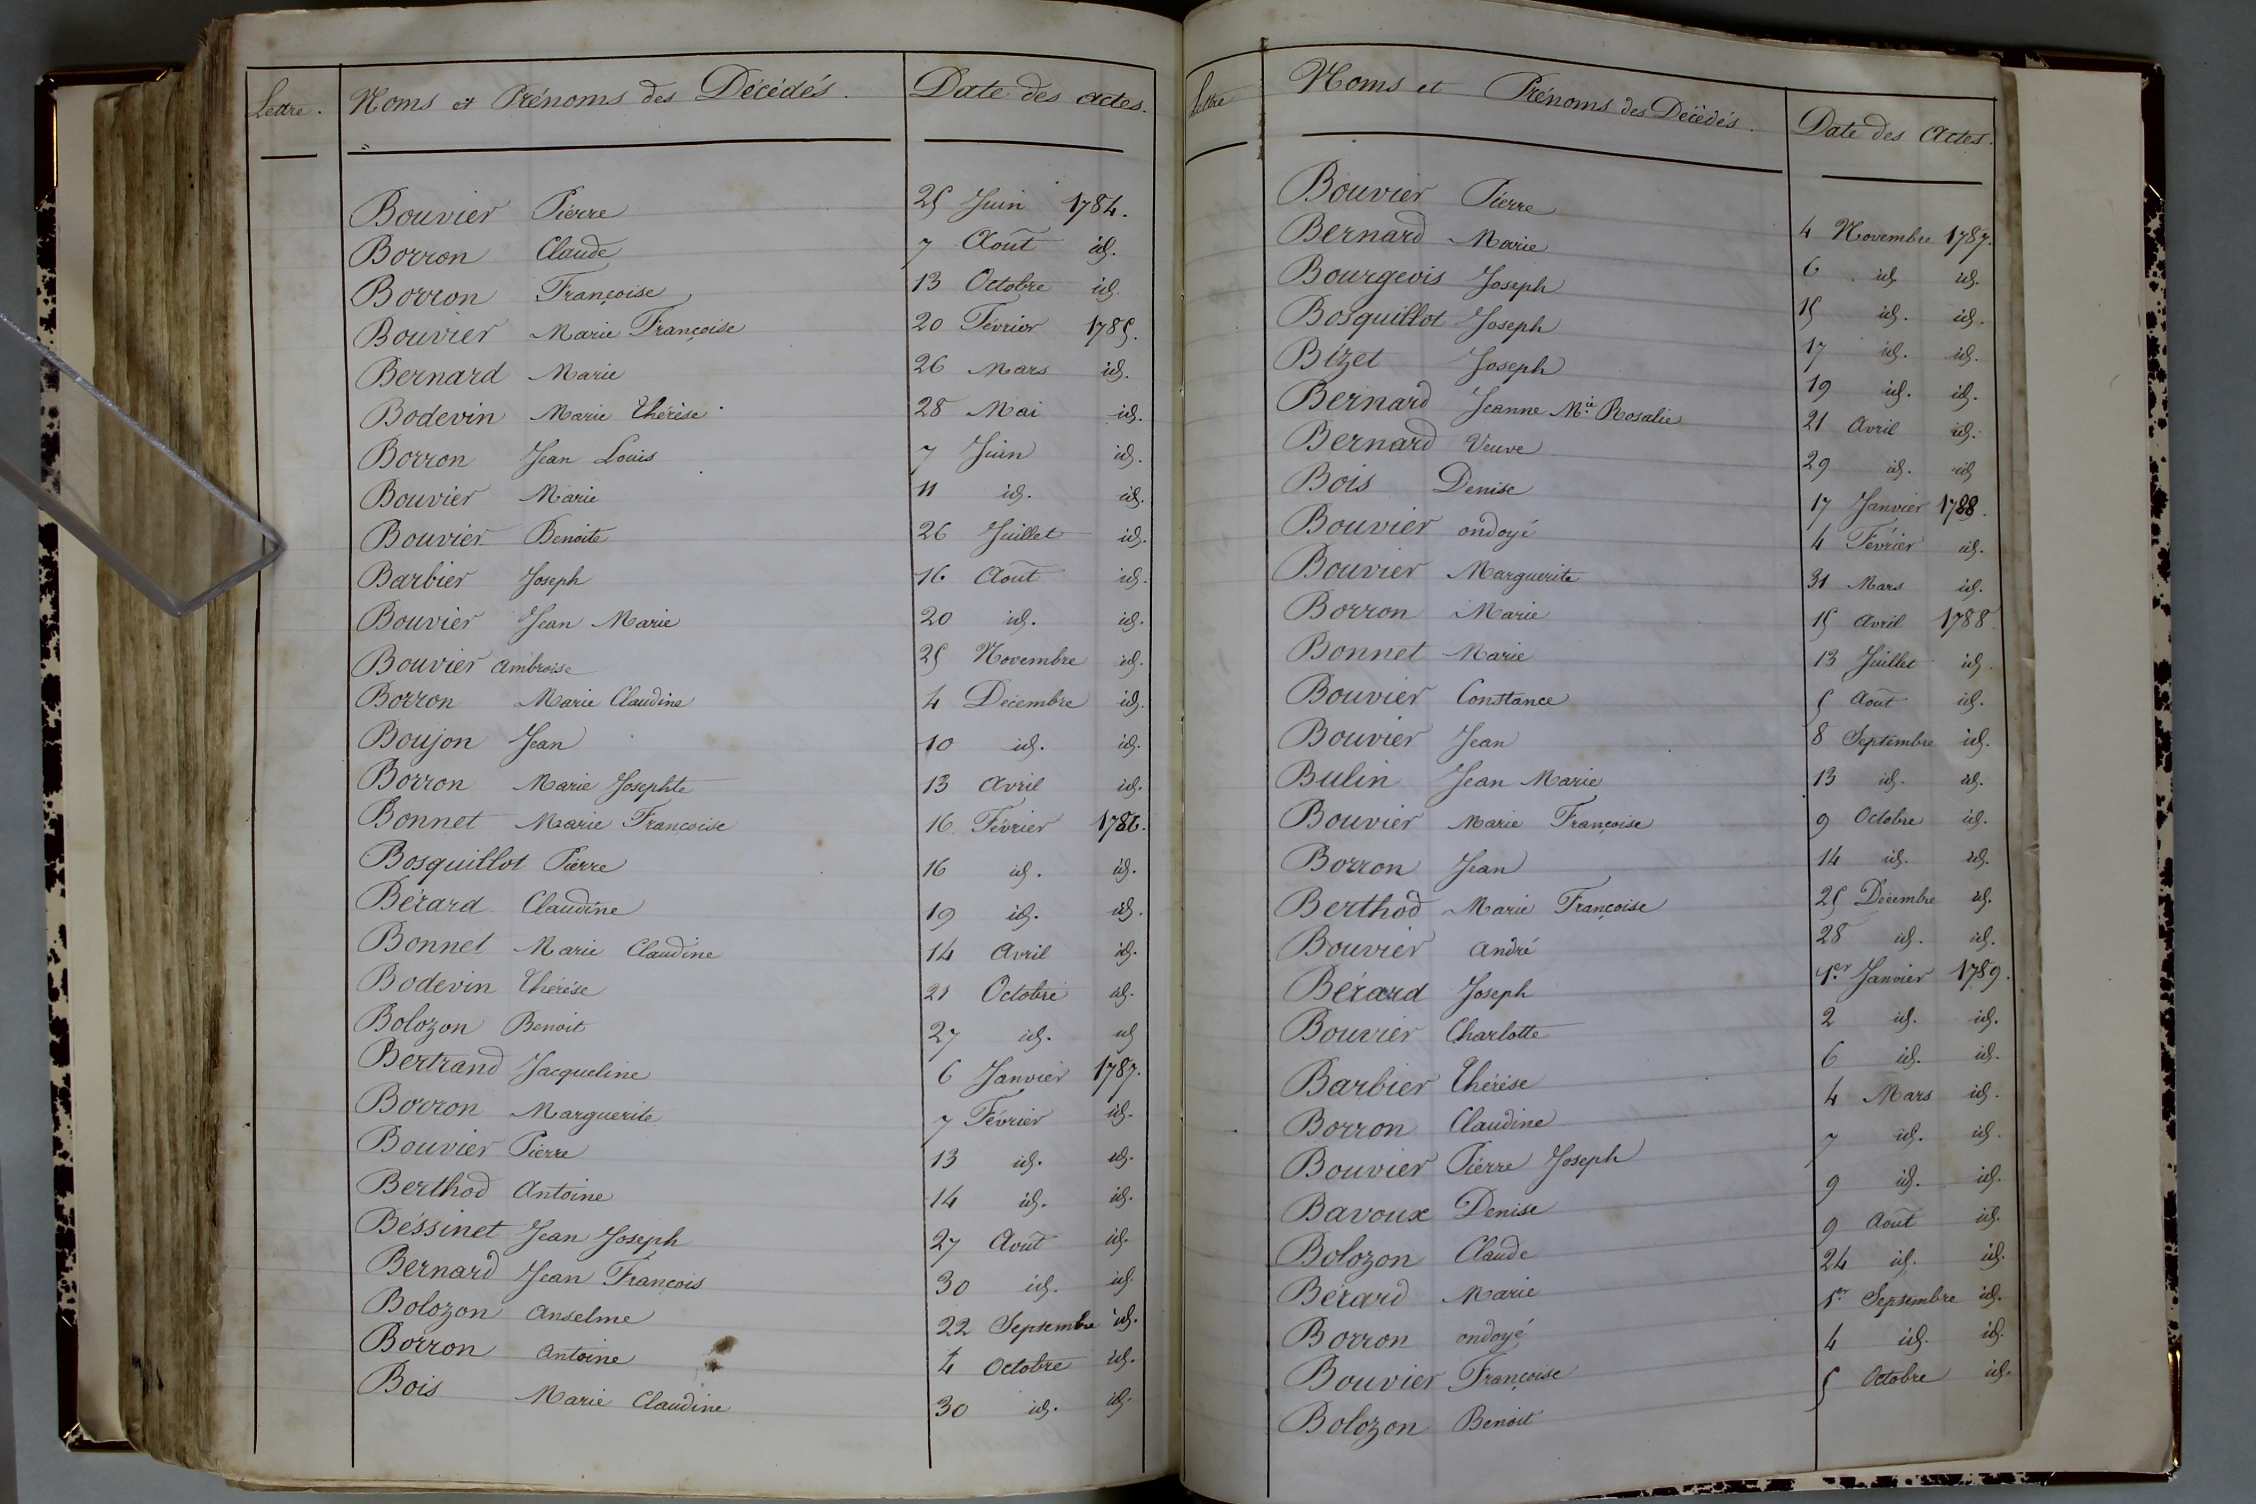 Lettre. Noms et Prénoms des Décédés. Date des actes.
Bouvier Pierre 25 Juin 1784.
Borron Claude 7 Août id.
Borron Françoise 13 Octobre id.
Bouvier Marie Françoise 20 Février 1785.
Bernard Marie 26 Mars id.
Bodevin Marie Thérèse 28 Mai id.
Borron Jean Louis 7 Juin id.
Bouvier Marie 11 id. id.
Bouvier Benoite 26 Juillet id.
Barbier Joseph 16 Août id.
Bouvier Jean Marie 20 id. id.
Bouvier ambroise 25 Novembre id.
Borron Marie Claudine 4 Décembre id.
Boujon Jean 10 id. id.
Borron Marie Josephte 13 Avril id.
Bonnet Marie Françoise 16 Février 1786.
Bosquillot Pierre 16 id. id.
Bérard Claudine 19 id. id.
Bonnet Marie Claudine 14 Avril id.
Bodevin Thérèse 21 Octobre id.
Bolozon Benoit 27 id. id
Bertrand Jacqueline 6 Janvier 1787.
Borron Marguerite 7 Février id.
Bouvier Pierre 13 id. id.
Berthod Antoine 14 id. id.
Béssinet Jean Joseph 27 Août id.
Bernard Jean François 30 id. id.
Bolozon Anselme 22 Septembre id.
Borron Antoine 4 Octobre id.
Bois Marie Claudine 30 id. id.
Lettre Noms et Prénoms des Décédés. Date des Actes.
Bouvier Pierre 4 Novembre 1787.
Bernard Marie 6 id. id.
Bourgeois Joseph 15 id. id.
Bosquillot Joseph 17 id. id.
Bizet Joseph 19 id. id.
Bernard Jeanne Mie Rosalie 21 Avril id.
Bernard Veuve 29 id. id
Bois Denise 17 Janvier 1788.
Bouvier ondoyé 4 Février id.
Bouvier Marguerite 31 Mars id.
Borron Marie 15 Avril 1788
Bonnet Marie 13 Juillet id.
Bouvier Constance 5 Août id.
Bouvier Jean 8 Septembre id.
Bulin Jean Marie 13 id. id.
Bouvier Marie Françoise 9 Octobre id.
Borron Jean 14 id. id.
Berthod Marie Françoise 25 Décembre id.
Bouvier André 28 id. id.
Bérard Joseph 1er Janvier 1789.
Bouvier Charlotte 2 id. id.
Barbier Thérèse 6 id. id.
Borron Claudine 4 Mars id.
Bouvier Pierre Joseph 7 id. id.
Bavoux Denise 9 id. id.
Bolozon Claude 9 Août id.
Bérard Marie 24 id. id.
Borron ondoyé 1er Septembre id.
Bouvier Françoise 4 id. id.
Bolozon Benoit 5 Octobre id.